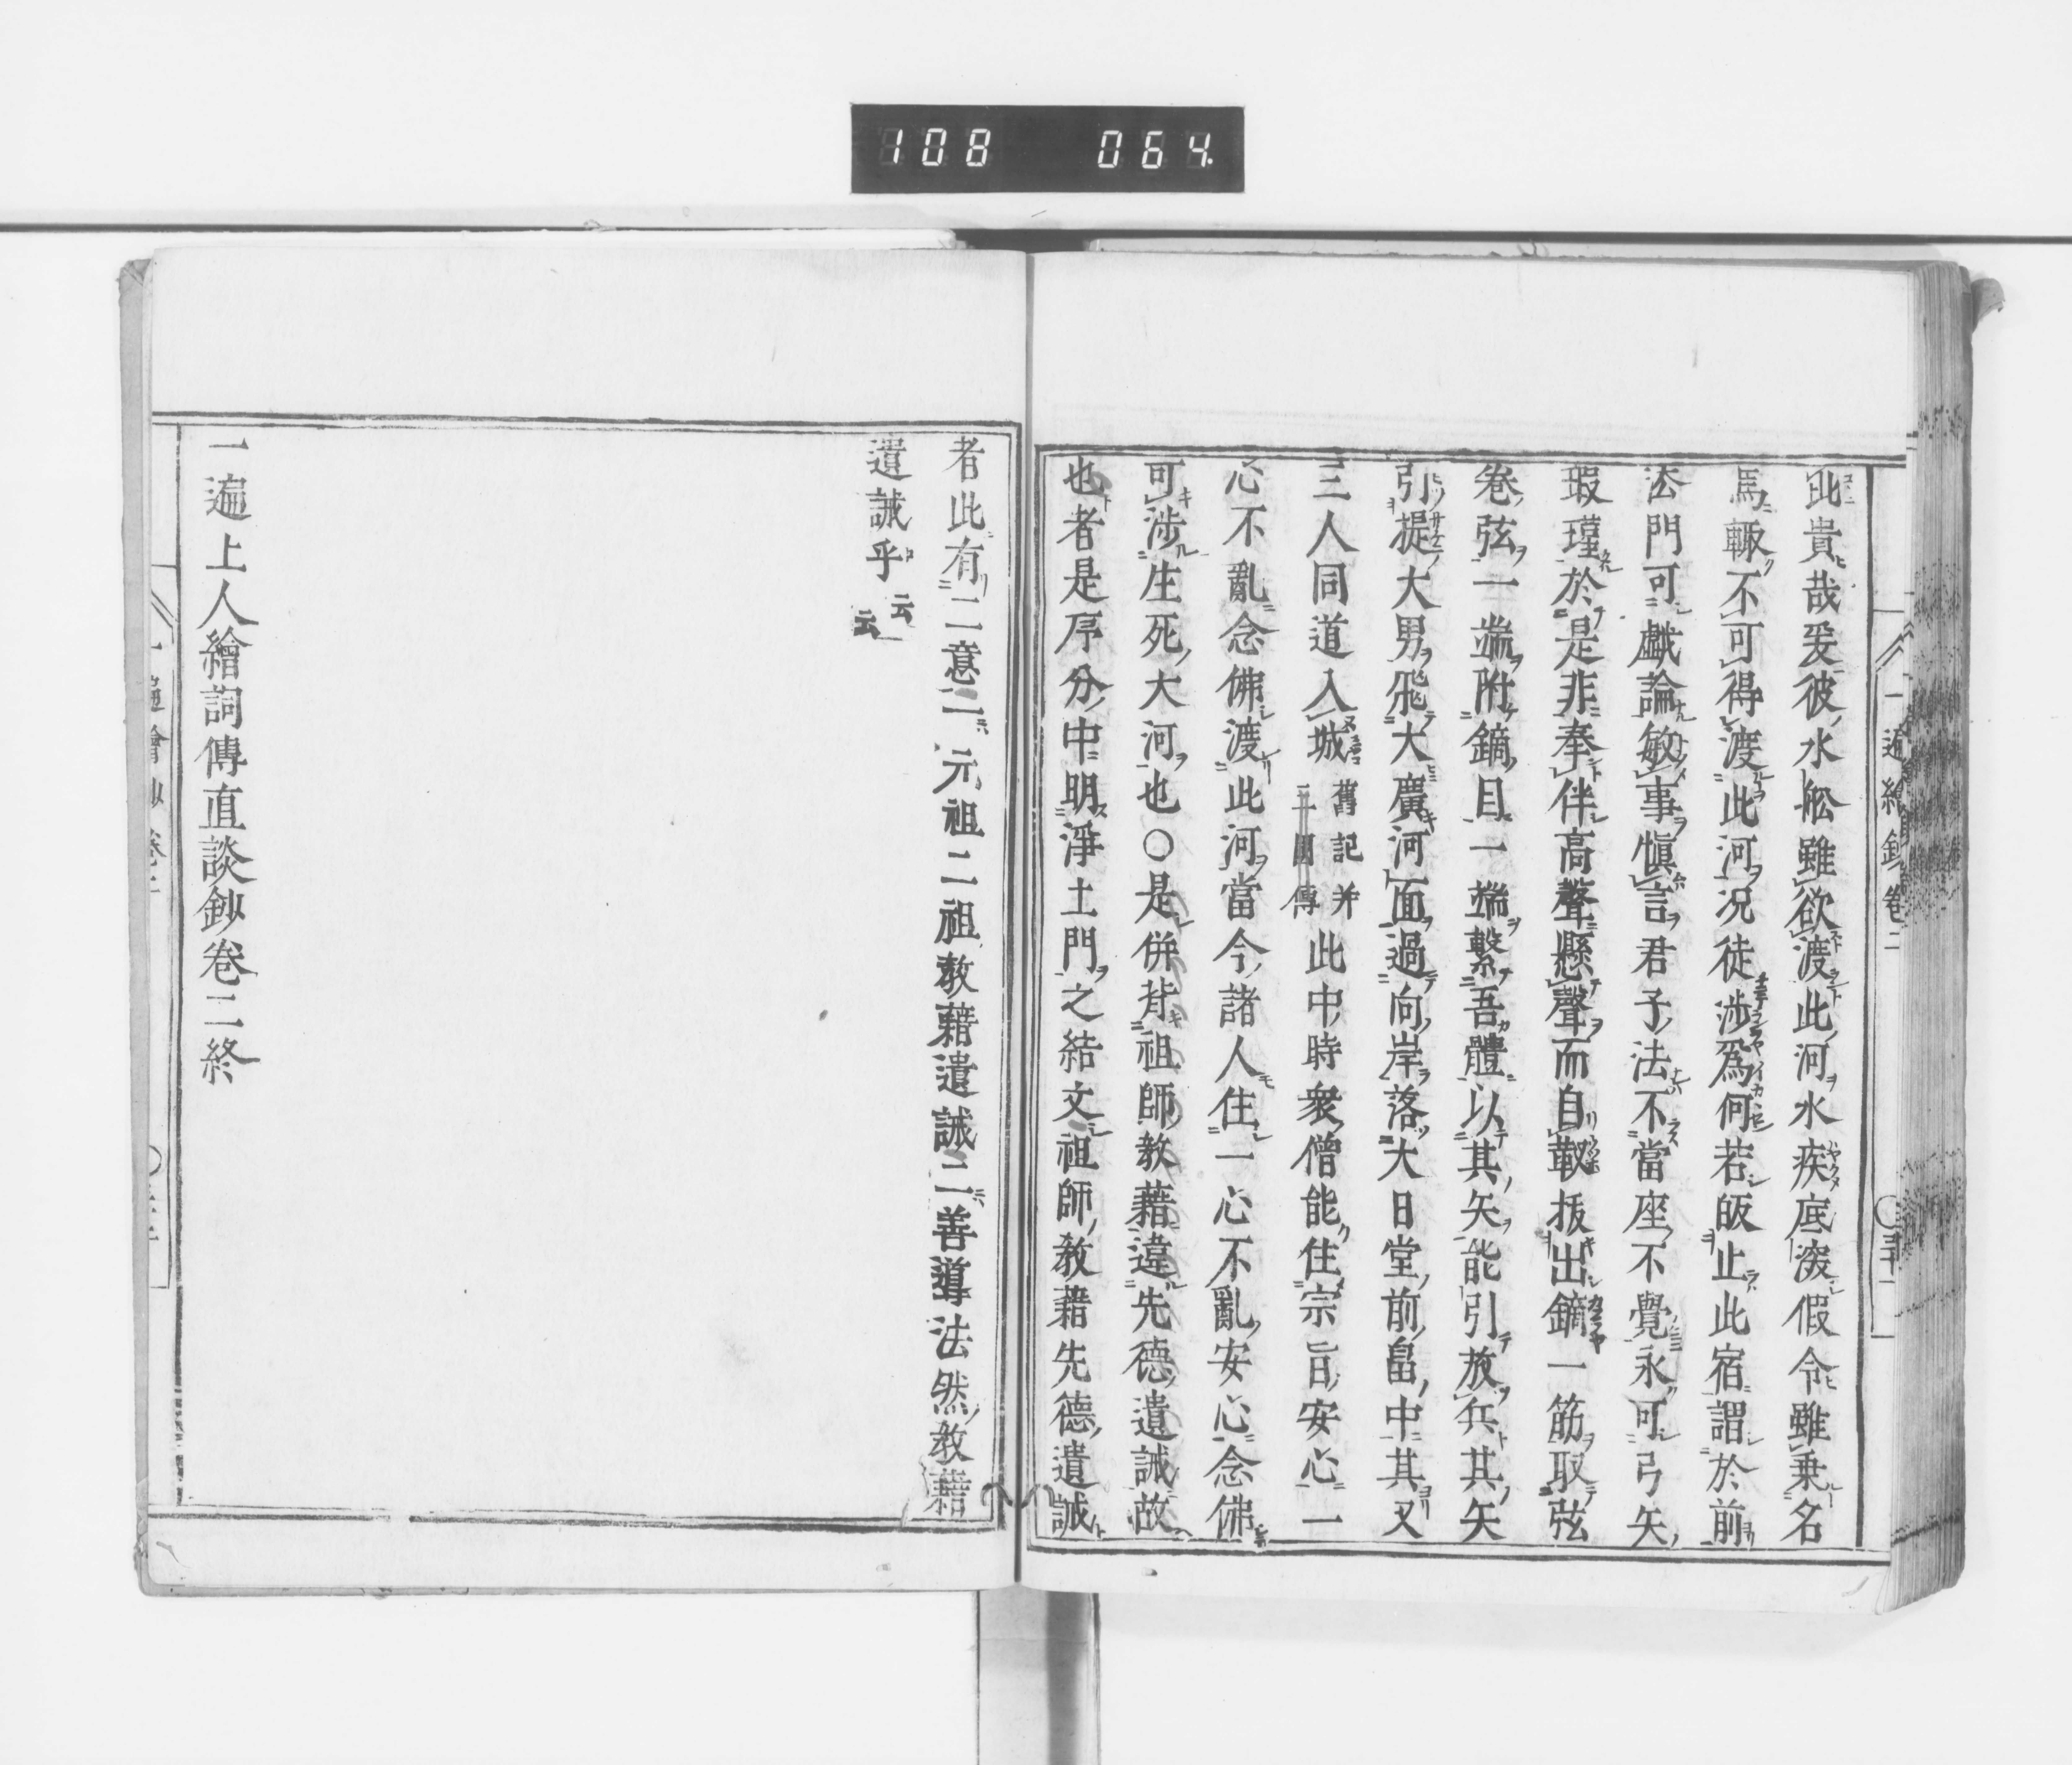 108 064.
此貴哉爰彼水舩雖欲渡此河水疾底深假令雖乗名
馬輙不可得渡此河况徒渉爲何若皈止此宿謂於前
法門可戯論敏事愼言君子法不當座不覺永可弓矢
瑕瑾於是非奉伴高聲懸聲而自靫抜出鏑一筋取弦
卷弦一端附鏑目一端繋吾體以其矢能引放兵其矢
引提大男飛大廣河面過向岸落大日堂前畠中其又
三人同道入城
舊記并
三國傳
此中時衆僧能住宗旨安心一
心不亂念佛渡此河當今諸人住一心不亂安心念佛
可渉生死大河也〇是併背祖師教藉違先德遺誡故
也者是序分中明淨土門之結文祖師教藉先德遺誡
一遍繪鈔卷二
〇三十一
者此有二意一元祖二祖教藉遺誡二善導法然教藉
遺誡乎
云云
一遍上人繪詞傳直談鈔卷二終